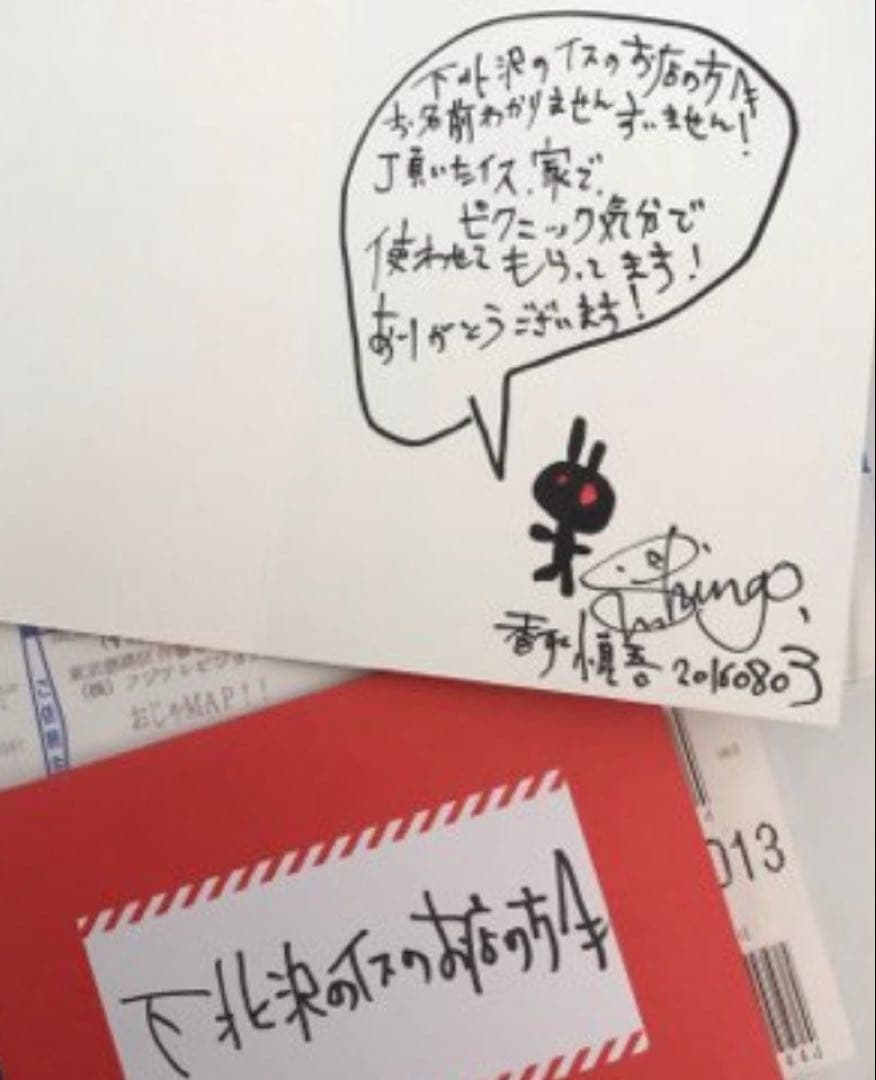 下北沢のイスのお店の方へ
お名前わかりません すいません!
頂いたイス、家で、
ピクニック気分で
使わせてもらってます!
ありがとうございます!
Shingo,
香取慎吾 20160803
(株)フジテレビジ
おじゃMAP!!
013
下北沢のイスのお店の方へ